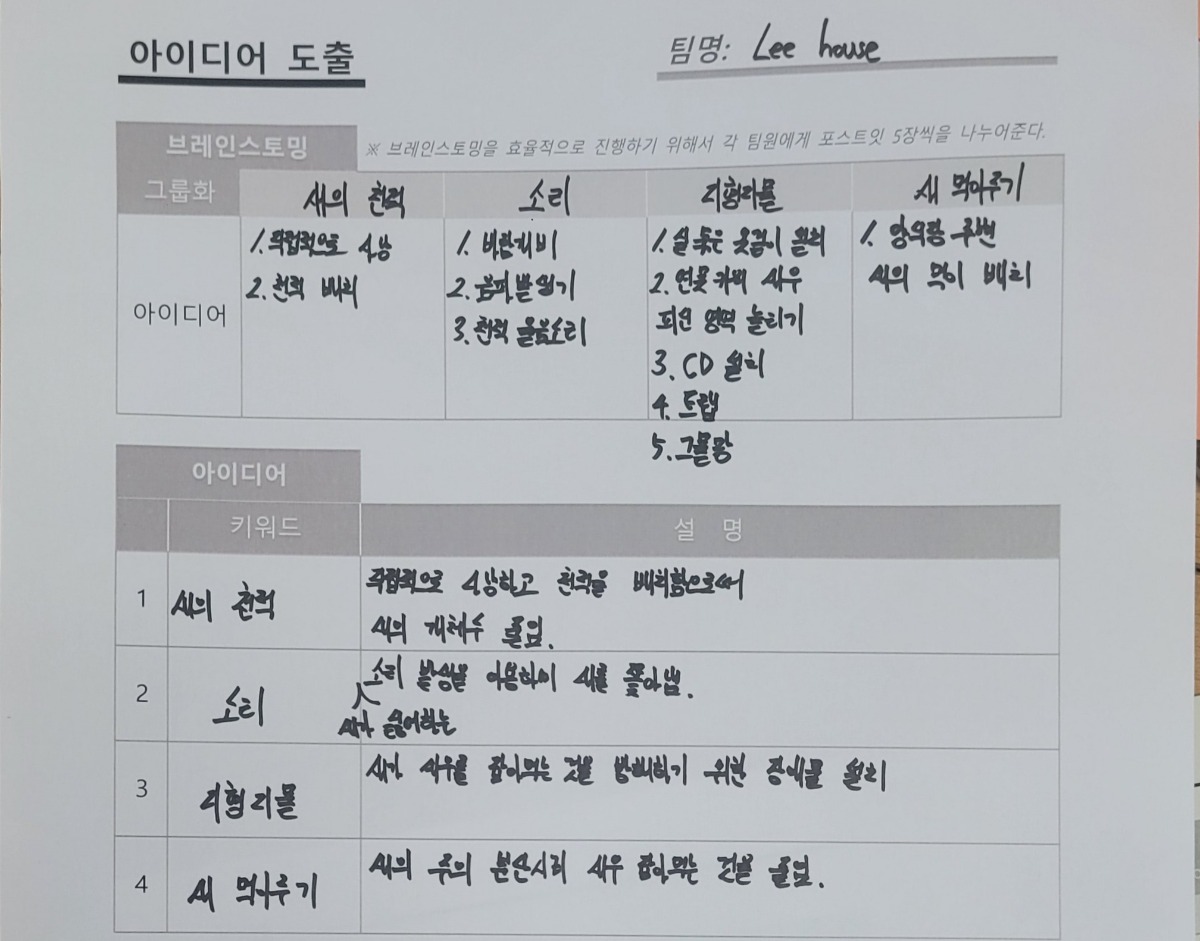 아이디어 도출
팀명: Lee house
브레인스토밍
※ 브레인스토밍을 효율적으로 진행하기 위해서 각 팀원에게 포스트잇 5장씩을 나누어준다.
그룹화 새의 천적 소리 지형지물 새 먹여주기
아이디어
1. 직접적으로 사냥
2. 천적 배치
1. 바람개비
2. 부피뿔 얹기
3. 천적 울음소리
1. 실 묶은 옷걸이 설치
2. 연못 키워 새우
피신 영역 늘리기
3. CD 설치
4. 트랩
5. 그물망
1. 양식장 주변
새의 먹이 배치
아이디어
키워드 설 명
1 새의 천적
직접적으로 사냥하고 천적을 배치함으로써
새의 개체수 줄임.
2 소리
소리 발생을 이용하여 새를 쫓아냄.
새가 싫어하는
3 지형지물
새가 새우를 잡아먹는 것을 방해하기 위한 장애물 설치
4 새 먹여주기
새의 주의 분산시켜 새우 잡아먹는 것을 줄임.